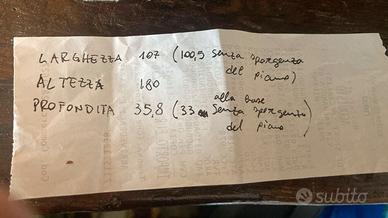 LARGHEZZA 107 (100,5 senza sporgenza
del piano)
ALTEZZA 180
alla base
PROFONDITA 35,8 (33 senza sporgenza
del piano)
subito